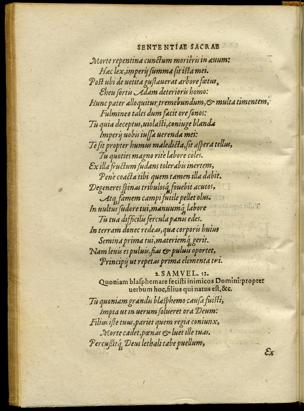 SENTENTIAE SACRAE
Morte repentina cunctum morieris in auum:
Hac lex, imperij summa sit ista mei.
Post ubi de uetita gustauerat arbore fœtus,
Eheu sortis Adam deterioris homo:
Hunc pater alloquitur, tremebundum, & multa timentem,
Fulmineo tales dum facit ore sonos:
Tu quia deceptus, uiolasti, coniuge blanda
Imperij uobis iussa uerenda mei:
Te sit propter humus maledicta, sit aspera tellus,
Tu quoties magno rite labore coles.
Ex illa fructum sudans tolerabis inertem,
Penè coacta tibi quem tamen illa dabit.
Degeneres spinas tribulosq; siue acutos,
Atq; famem campi fustic pellet olus.
In uultus sudore tui, manuumq; labore
Tu tua difficili fercula panis edes.
In terram donec redeas, qua corporis huius
Semina prima tui, materiemq; gerit.
Nam leuis es puluis, fias & puluis oportet,
Principij ut repetas prima elementa tri.
2. SAMVEL. 12.
Quoniam blasphemare fecisti inimicos Domini: propter
uerbum hoc, filius qui natus est, &c.
Tu quoniam grandis blasphemo causa fuisti,
Impia ut in uerum solueret ora Deum:
Filius iste tuus, pariet quem regia coniunx,
Morte cadet, pœnas & luet ille tuas.
Percussitq; Deus lethali tabe puellum,
Ex